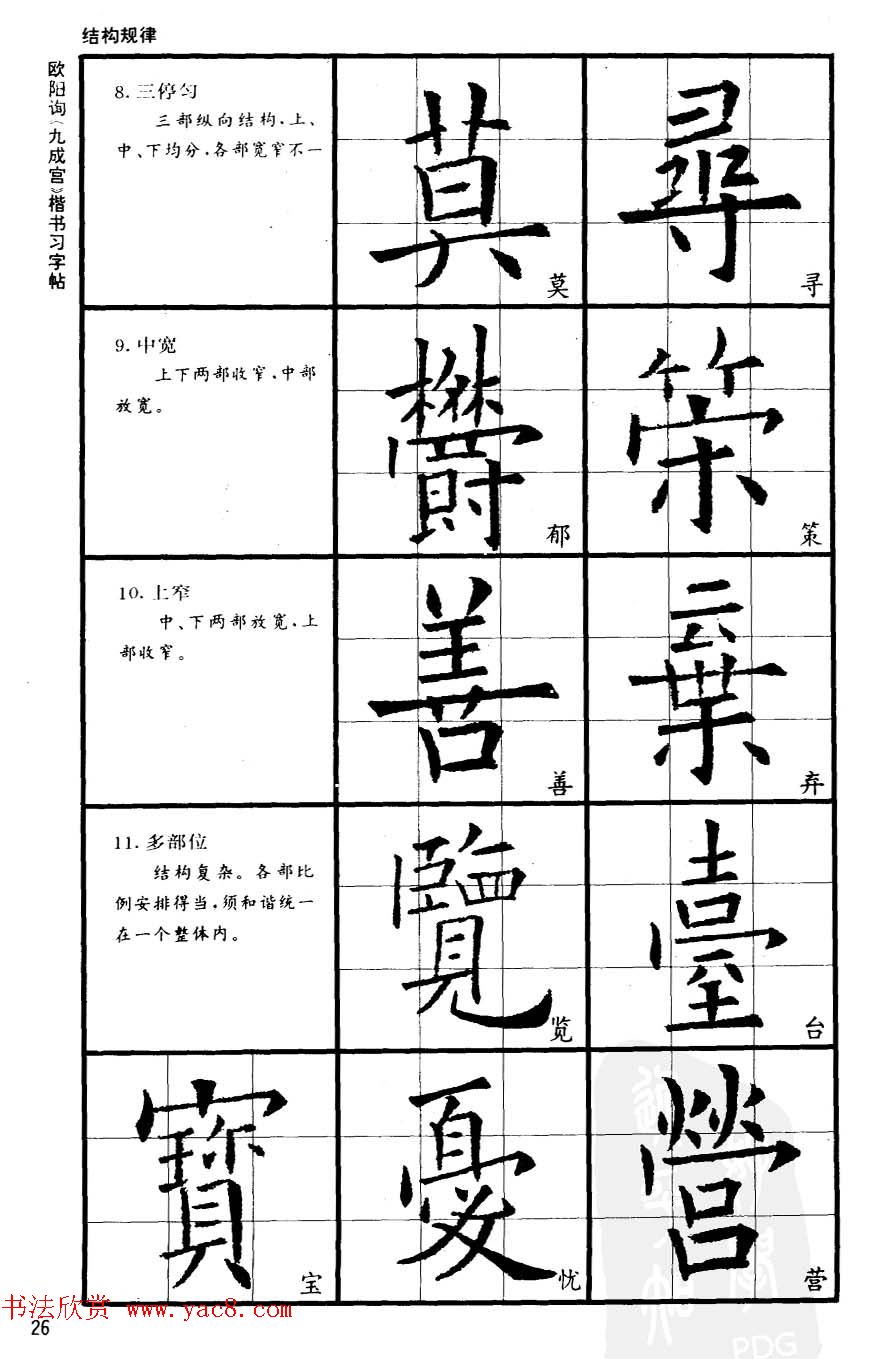 结构规律
欧阳询《九成宫》楷书习字帖
8. 三停匀
三部纵向结构,上、
中、下均分,各部宽窄不一
莫
莫
尋
寻
9. 中宽
上下两部收窄,中部
放宽。
郁
策
10. 上窄
中、下两部放宽,上
部收窄。
善
善
弃
11. 多部位
结构复杂。各部比
例安排得当,须和谐统一
在一个整体内。
覽
览
臺
台
寶
宝
憂
忧
營
营
书法欣赏 www.yac8.com
26
PDG